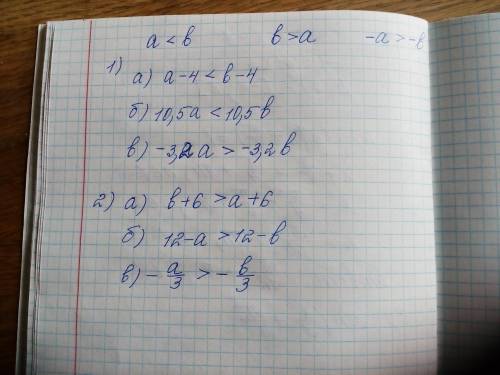 a < b b > a -a > -b
1) а) a-4 < b-4
б) 10,5a < 10,5b
в) -3,2a > -3,2b
2) а) b+6 > a+6
б) 12-a > 12-b
в) - a/3 > - b/3